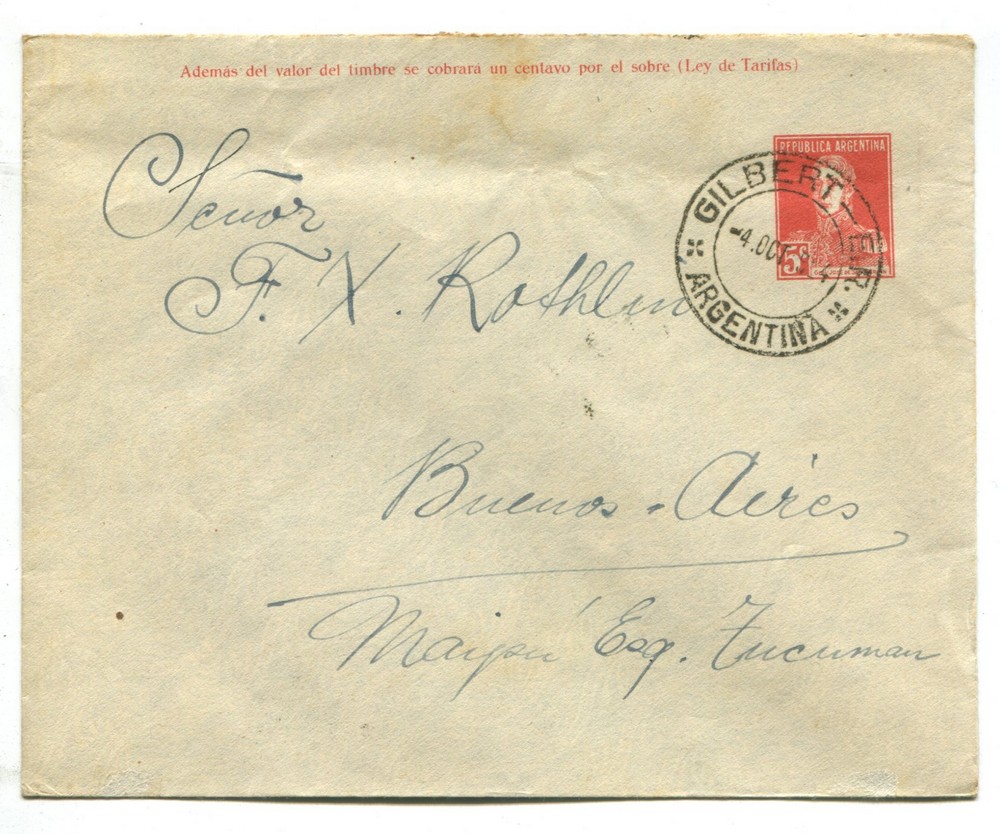 Además del valor del timbre se cobrará un centavo por el sobre (Ley de Tarifas)
REPUBLICA ARGENTINA
5c
GILBERT
4.OCT
ARGENTINA
Señor
F. X. Rothlin
Buenos-Aires
Maipú Esq. Tucuman